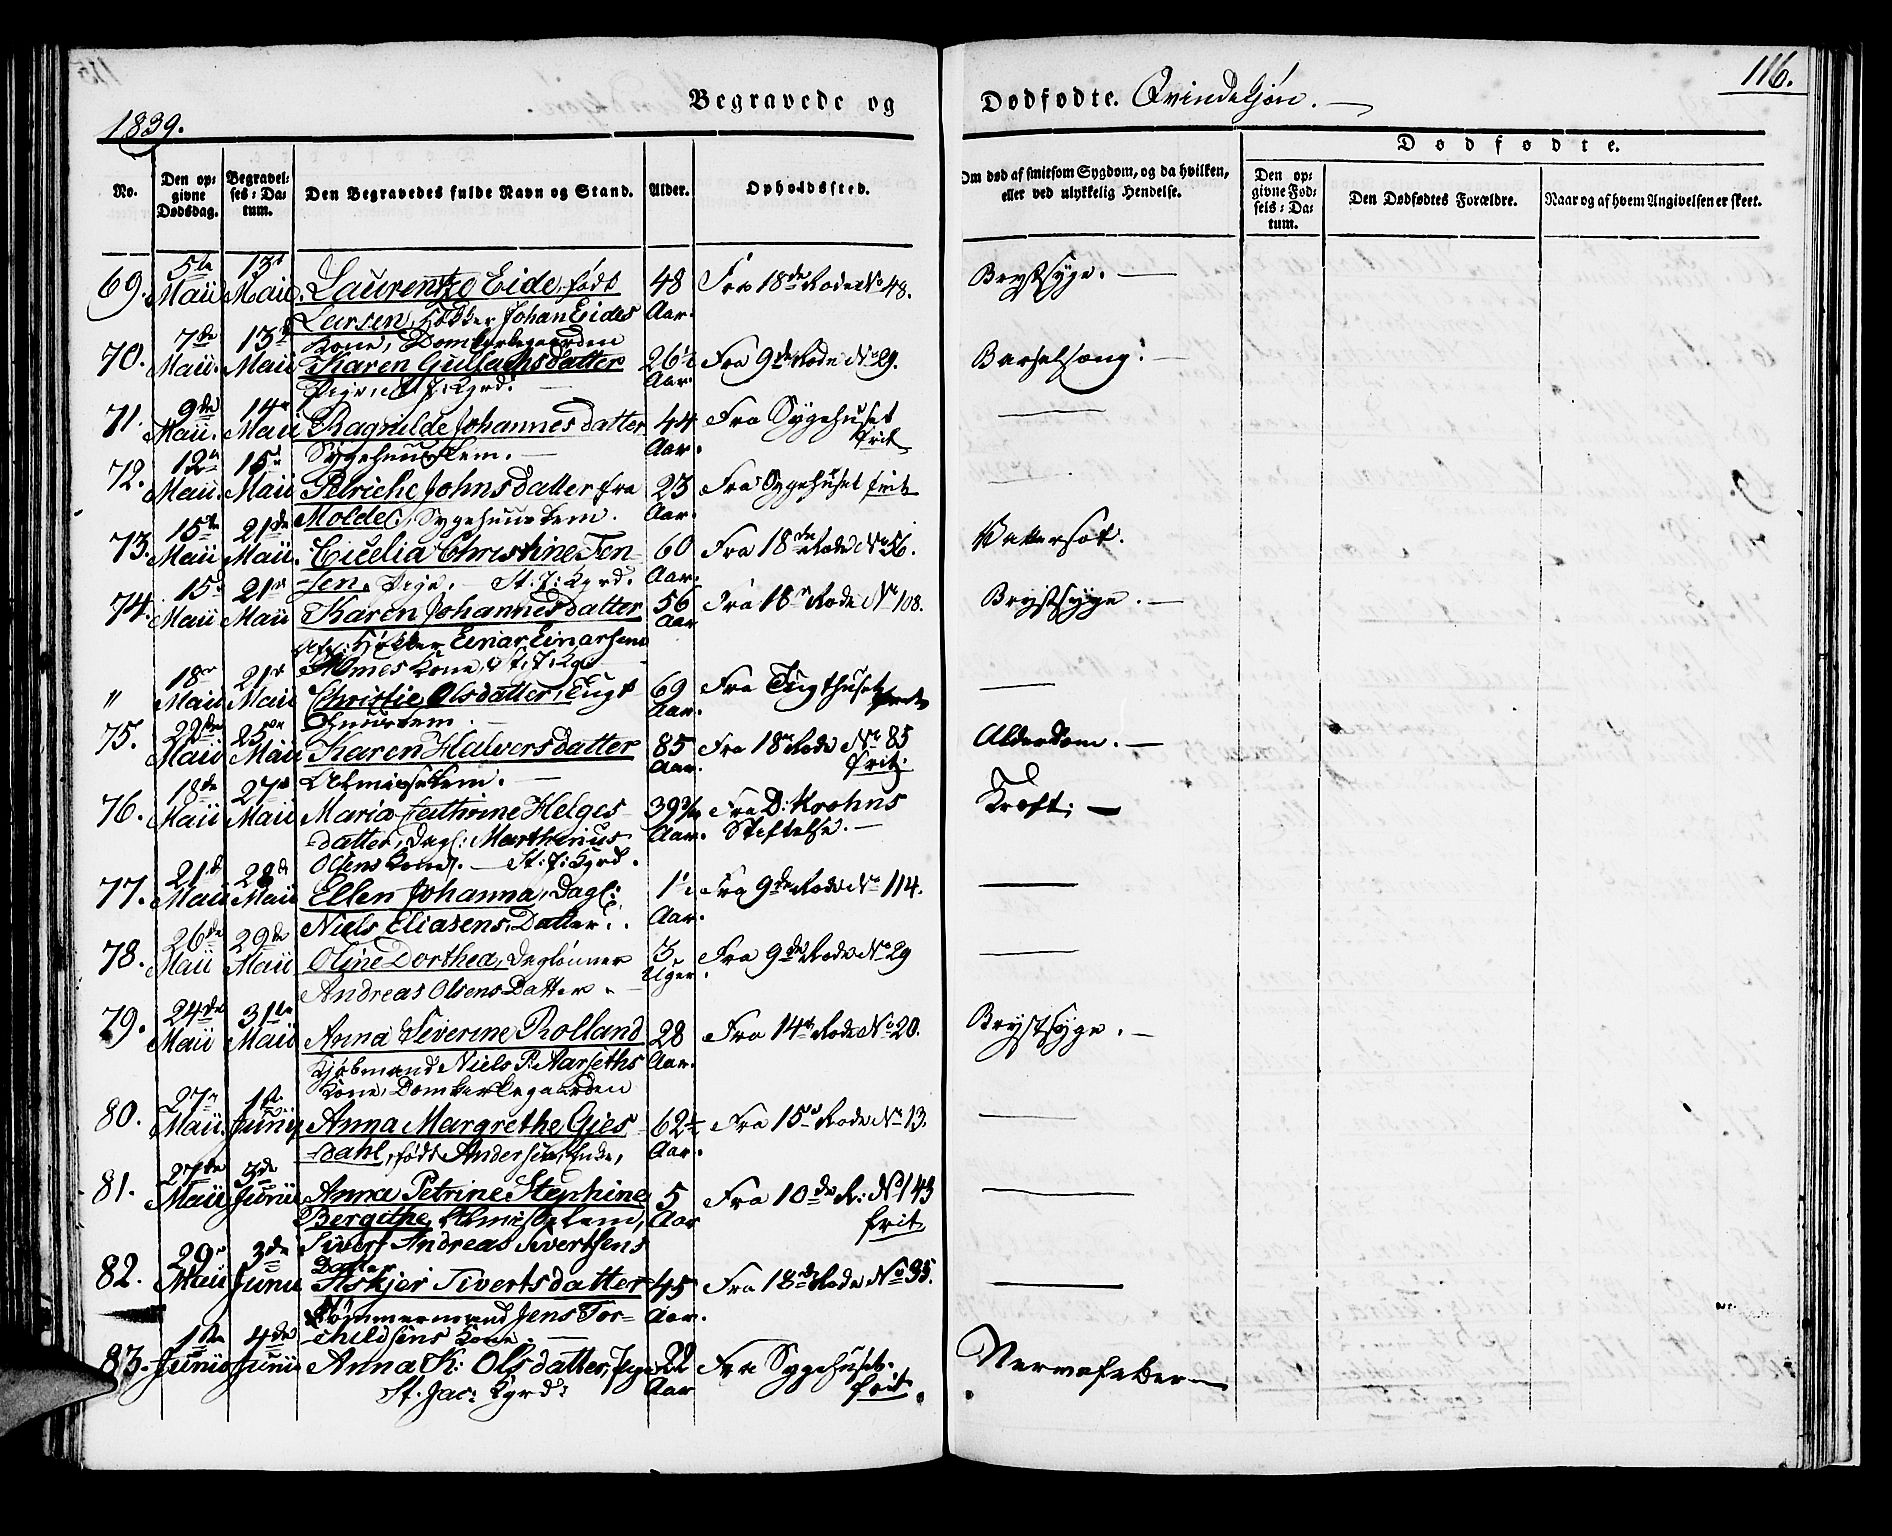 116.
Begravede og Dødfødte. Qvindekjøn.
1839.
Dødfødte.
No. Den opgivne Dødsdag. Begravelses-Datum. Den Begravedes fulde Navn og Stand. Alder. Opholdssted. Om død af smitsom Sygdom, og da hvilken, eller ved ulykkelig Hendelse. Den opgivne Fødsels-Datum. Den Dødfødtes Forældre. Naar og af hvem Angivelsen er skeet.
69. 5te Maii 13de Maii Laurentze Eide, født 48 Aar. Fra 18de Rode No 48. Brystsyge.
Larsen, Høkker Johan Eides
Kone, Domkirkegaarden
70. 7de Maii. 13de Maii Karen Gullachsdatter 26½ Aar. Fra 9de Rode No 29. Barselseng.
Pige, St. J: Kgrd.
71. 9de Maii. 14de Maii Ragnilde Johannesdatter 44 Aar. Fra Sygehuset frit
Sygehuuslem.
72. 12te Maii. 15de Maii Petriche Johnsdatter fra 23 Aar. Fra Sygehuset frit
Molde, Sygehuuslem.
73. 15de Maii 21de Maii. Cicelia Christine Jen- 60 Aar. Fra 18de Rode No 56. Vattersot.
sen, Pige, St. J: Kgrd.
74. 15de Maii 21de Maii Karen Johannesdatter 56 Aar Fra 18de Rode No 108. Brystsyge.
Høkker Einar Einarsens
Kone, St. J: Kgd
" 18de Maii 21de Maii Christie Olsdatter, Tugt- 69 Aar. Fra Tugthuset frit
huuslem.
75. 22de Maii 25de Maii Karen Halversdatter 85 Aar. Fra 18de Rode No 85 frit. Alderdom.
Almisselem.
76. 18de Maii 27de Maii Maria Cathrine Helges- 39¾ Aar. Fra D: Krohns Stiftelse. Kræft.
datter, Dagl: Marthinius
Olsens Kone. St. J: Kgrd.
77. 21de Maii 28de Maii Ellen Johanna, Dagl: 1½ Aar. Fra 9de Rode No 114.
Niels Eliasens Datter.
78. 26de Maii 29de Maii Oline Dorthea, Daglønner 3 Uger. Fra 9de Rode No 29
Andreas Olsens Datter.
79. 24de Maii 31te Maii Anna Severine Rolland 28 Aar. Fra 14de Rode No 20. Brystsyge.
Kjøbmand Niels P: Aarseths
Kone, Domkirkegaarden
80. 27de Maii. 1ste Junij Anna Margrethe Gies- 62½ Aar. Fra 15de Rode No 13.
dahl, født Andersen, Enke,
81. 27de Maii 3de Junii Anna Petrine Stephine 5 Aar Fra 10de R: No 143 frit
Bergithe, Almisselem,
Sivert Andreas Sivertsens
Datter
82. 29de Maii 3de Junii Askjer Sivertsdatter 45 Aar. Fra 18de Rode No 35.
Tømmermand Jens Tor-
childsens Kone.
83. 1ste Junii 4de Junii Anna K: Olsdatter, Pige 22 Aar Fra Sygehuset. frit Nervefeber
St. Jac: Kgrd: